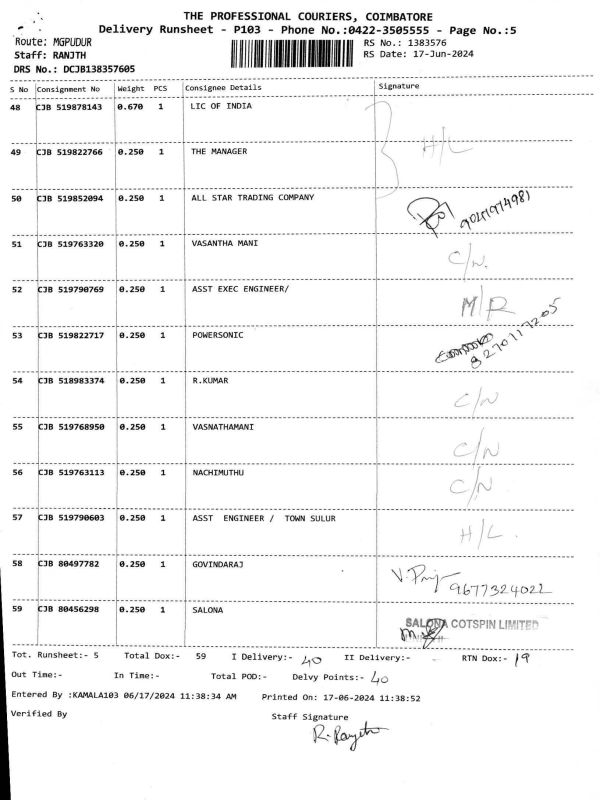 THE PROFESSIONAL COURIERS, COIMBATORE
Delivery Runsheet - P103 - Phone No.:0422-3505555 - Page No.:5
Route: MGPUDUR RS No.: 1383576
Staff: RANJTH RS Date: 17-Jun-2024
DRS No.: DCJB138357605
S No Consignment No Weight PCS Consignee Details Signature
48 CJB 519878143 0.670 1 LIC OF INDIA
49 CJB 519822766 0.250 1 THE MANAGER H/L
50 CJB 519852094 0.250 1 ALL STAR TRADING COMPANY
51 CJB 519763320 0.250 1 VASANTHA MANI C/N.
52 CJB 519790769 0.250 1 ASST EXEC ENGINEER/ M/R
53 CJB 519822717 0.250 1 POWERSONIC 8270117205
54 CJB 518983374 0.250 1 R.KUMAR C/N
55 CJB 519768950 0.250 1 VASNATHAMANI C/N
56 CJB 519763113 0.250 1 NACHIMUTHU C/N
57 CJB 519790603 0.250 1 ASST ENGINEER / TOWN SULUR H/L
58 CJB 80497782 0.250 1 GOVINDARAJ 9677324022
59 CJB 80456298 0.250 1 SALONA SALONA COTSPIN LIMITED
Tot. Runsheet:- 5 Total Dox:- 59 I Delivery:- 40 II Delivery:- RTN Dox:- 19
Out Time:- In Time:- Total POD:- Delvy Points:- 40
Entered By :KAMALA103 06/17/2024 11:38:34 AM Printed On: 17-06-2024 11:38:52
Verified By Staff Signature